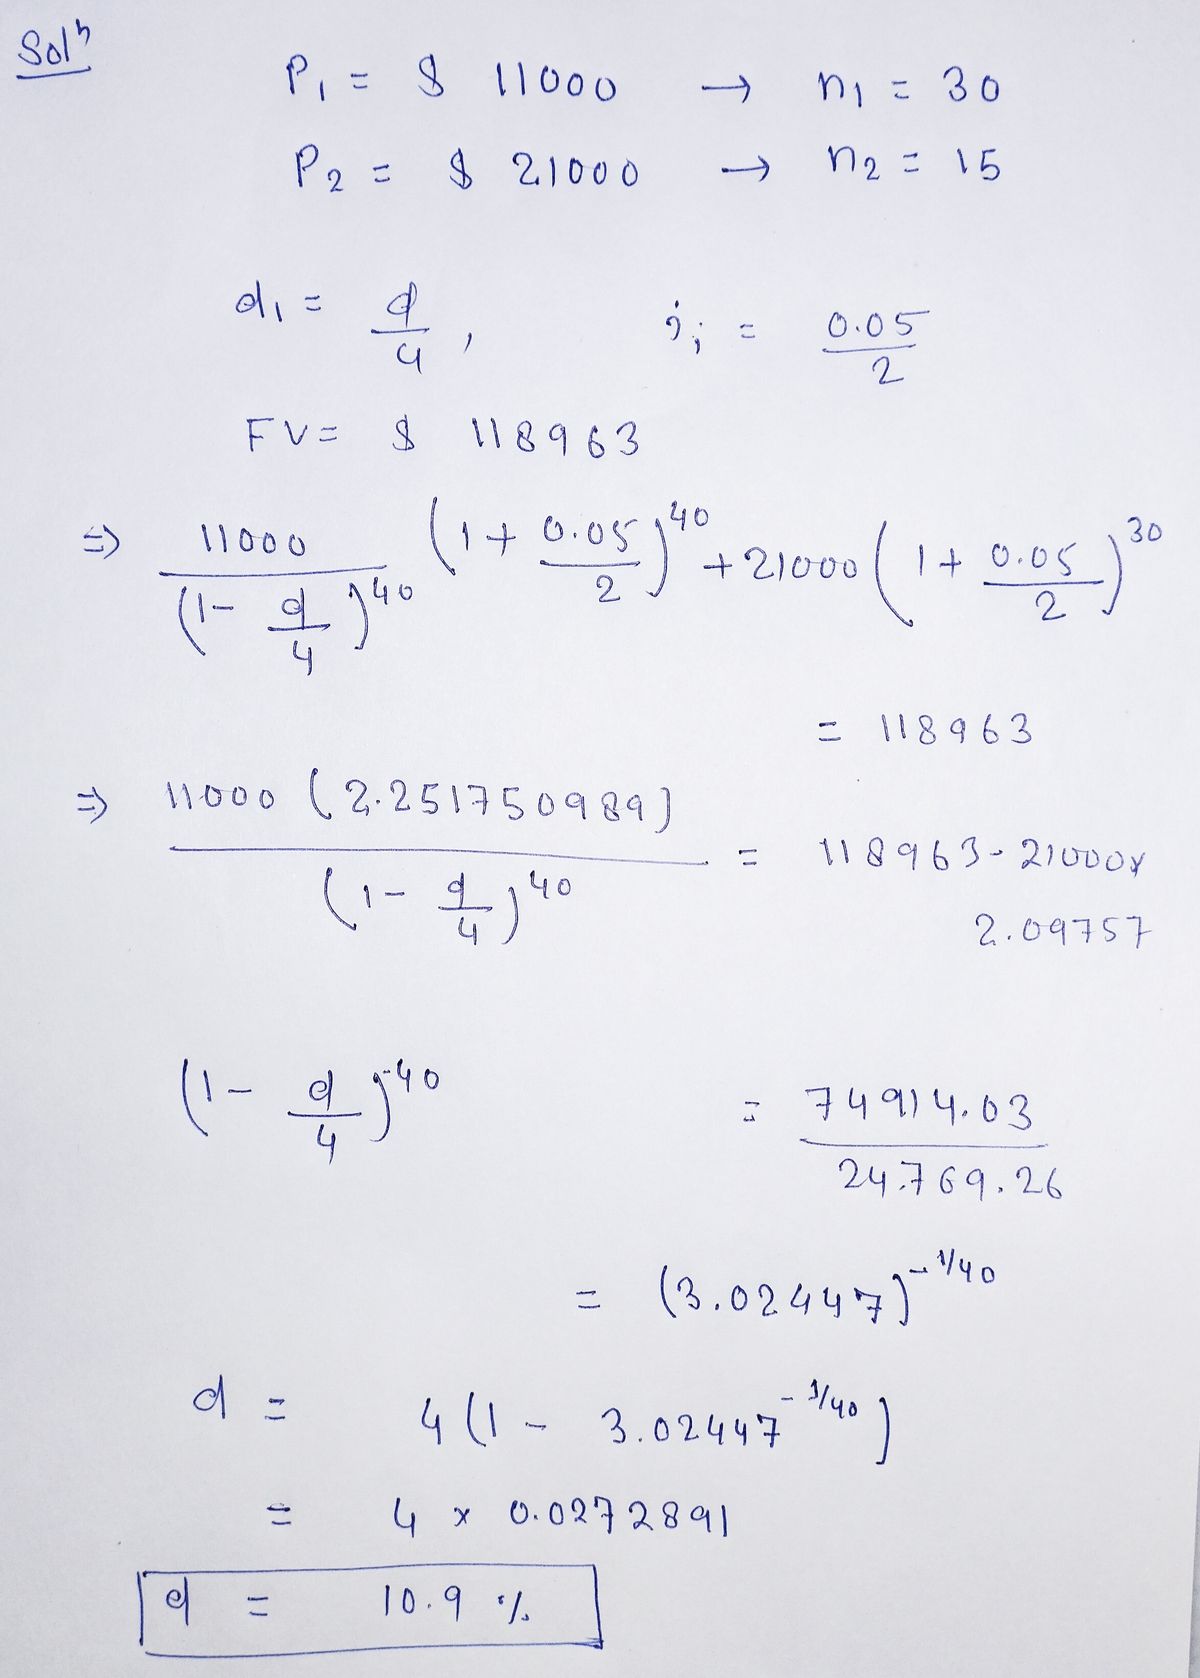 Solⁿ
P₁ = $ 11000 → n₁ = 30
P₂ = $ 21000 → n₂ = 15
d₁ = d/4 , i; = 0.05/2
FV = $ 118963
⇒ 11000/(1 - d/4)⁴⁰ (1 + 0.05/2)⁴⁰ + 21000 (1 + 0.05/2)³⁰
= 118963
⇒ 11000 (2.251750989)/(1 - d/4)⁴⁰ = 118963 - 21000 x
2.09757
(1 - d/4)⁻⁴⁰ = 74914.03/24769.26
= (3.02447)^-1/40
d = 4 (1 - 3.02447^-1/40)
= 4 x 0.0272891
d = 10.9 %